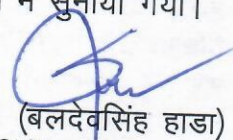 में सुनाया गया।
(बलदेवसिंह हाडा)